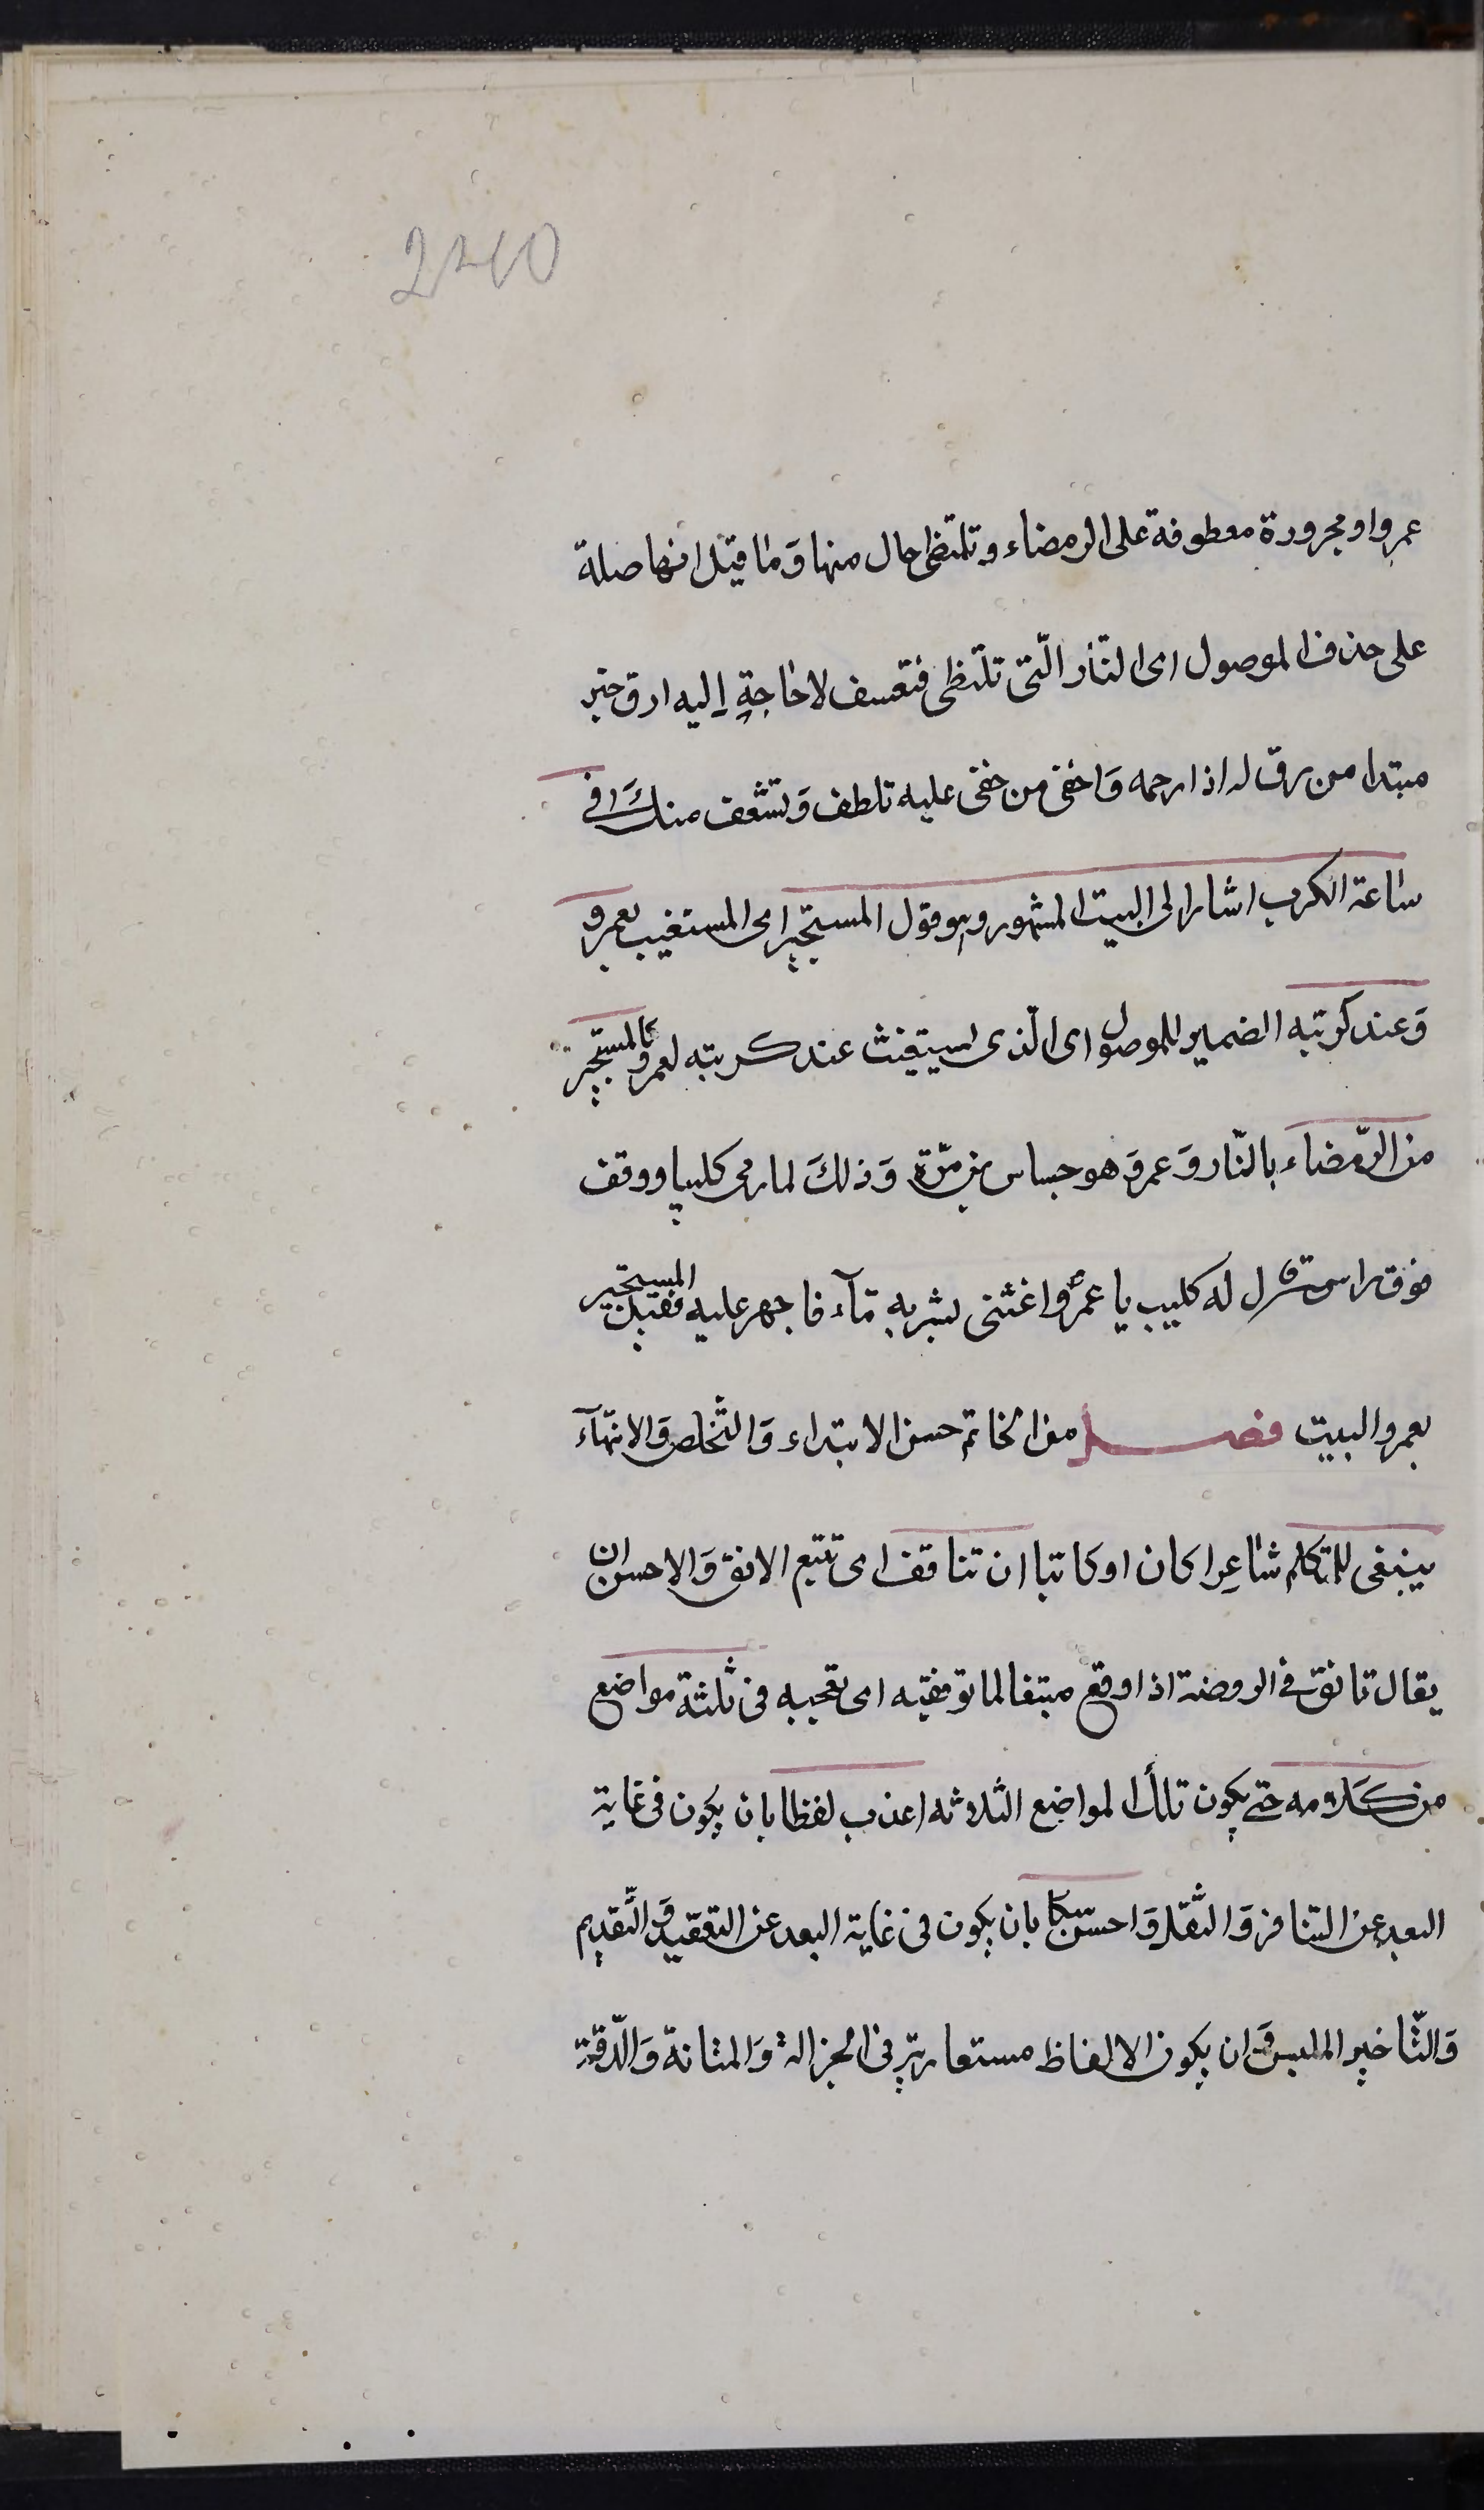 2210
عمرو او مجرورة معطوفة على الرمضاء و تلتظى حال منها وَما قيل انها صلة
على حذف الموصول اى النّار الّتى تلتظى فتعسف لا حاجةٍ إليه ارق خبر
مبتدا من رق له اذا رحمه وَاخفى من خفى عليه تلطف وَتشفف منكَ فى
ساعة الكرب اشار الى البيت المشهور وهو قول المستجير اى المستغيب بعمرو
وَعند كربته الضمير للموصول اى الّذى يستغيث عند كربته لعمرو كالمستجير
من الرّمضاء بالنّار وَعمرو هو جساس بن مرّة وَذلكَ لما رمى كليبا و وقف
فوق راسه قال له كليب يا عمرُو اغثنى بشربه مآء فاجهر عليه فقيل المستجير
بعمرو البيت فصل من الخاتم حسن الابتداء وَالتّخلص وَالانتهآء
ينبغى للمتكلم شاعِرا كان او كاتبا ان تناقف اى تتبع الانق وَالاحسن ان
يقال تانق فى الروضة اذا وقع متبغا لما توفقيه اى تعجبه فى ثلثة مواضع
من كلامه حتى يكون تلك المواضع الثلاثه اعذب لفظا بان يكون فى غاية
البعد عن التنافر وَالثّقل وَاحسن سبكا بان يكون فى غاية البعد عن التعقيد وَالتّقديم
وَالتّاخير الملبس وَان يكون الالفاظ مستعارتر فى الجزالة وَالمتانة وَالدّقة